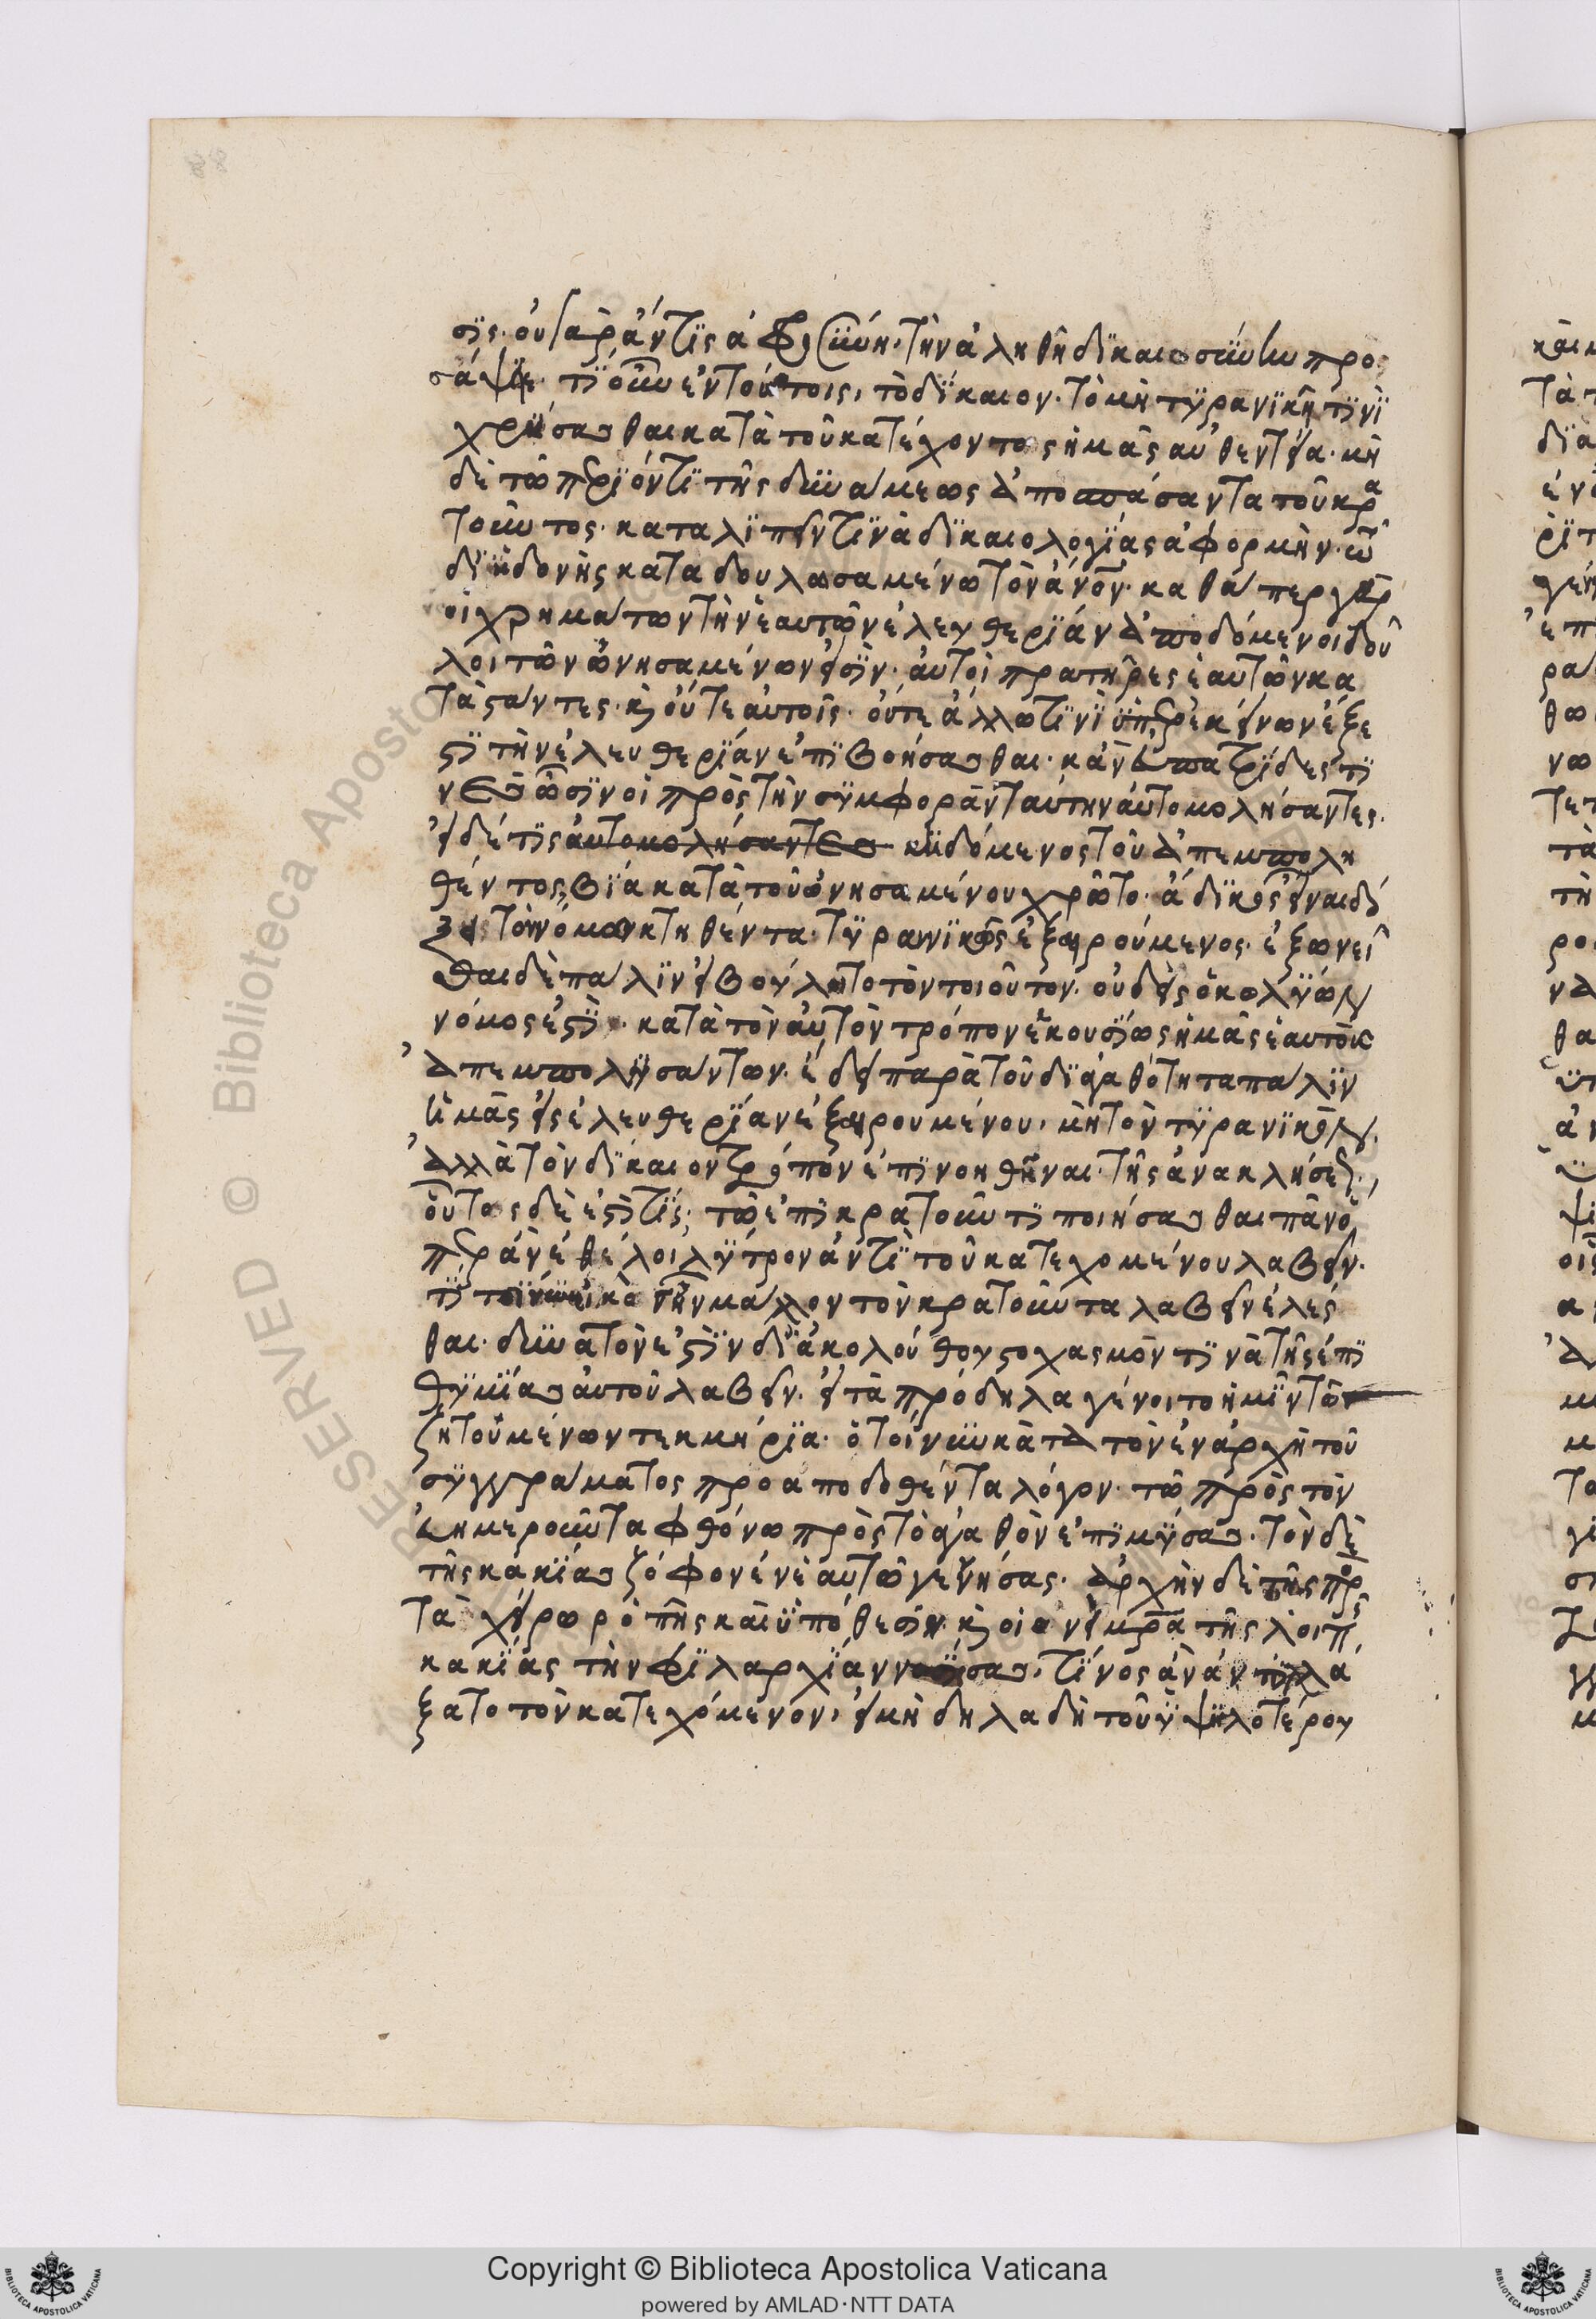 σῒς· οὐ γὰρ ἄν τῒς ἀφροσύνη, τὴν ἀληθῆ δϊκαιοσύνην προσ
άψϊε· τῒ οὖν ἐν τούτοις, τὸ δῒκαιον· τὸ μὴ τϋρανϊκῆ τϊνῒ
χρήσασθαι κατὰ τοῦ κατέχοντος ἡμᾶς αὐθεντεία· μὴ
δὲ τῶ περϊόντϊ τῆς δϋνάμεως ἀποσπάσαντα τοῦ κρα
τοῦντος· καταλϊπεῖν τϊνὰ δϊκαιολογῒας ἀφορμὴν· τῶ
δϊ ἡδονῆς καταδουλωσαμένω τὸν ἄνον· καθάπερ γὰρ
οἱ χρημάτων τὴν ἑαυτῶν ἐλευθερῒαν ἀποδόμενοι δοῦ
λοι τῶν ὠνησαμένων εἰσῒν· αὐτοὶ πρατῆρες ἑαυτῶν κα
τὰσάντες· κ οὔτε αὐτοῖς· οὔτε ἄλλω τϊνῒ ὑπὲρ ἐκείνων ἔξε
στϊ τὴν ἐλευθερῒαν ἐπϊβοήσασθαι· κἂν εὐπατρῒδες τϊ
νες ὦσϊν οἱ πρὸς τὴν σϋμφορὰν ταύτην αὐτομολήσαντες·
εἰ δέ τϊς αὐτομολήσαντες κϋδόμενος τοῦ ἀπεμπολη
θέντος, βϊα κατὰ τοῦ ὠνησαμένου χρῶτο· ἄδϊκος εἶναι δό
ξει τὸν νόμω κτηθέντα· τϋραννϊκῶς ἐξαιρούμενος· ἐξωνεῖ
σθαι δὲ πάλϊν εἰ βούλοιτο τὸν τοιοῦτον· οὐδεὶς ὁ κωλϋων
νόμος ἐστϊ· κατὰ τὸν αὐτὸν τρόπον ἑκουσῒως ἡμᾶς ἑαυτοὺς
ἀπεμπολησάντων· ἔδει παρὰ τοῦ δϊ ἀγαθότητα πάλϊν
ἡμᾶς εἰς ἐλευθερῒαν ἐξαιρουμένου, μὴ τὸν τϋρανϊκὸν·
ἀλλὰ τὸν δῒκαιον τρόπον ἐπϊνοηθῆναι· τῆς ἀνακλήσεως·
οὗτος δὲ ἐστῒ τῒς; τῶ ἐπϊκρατοῦντϊ ποιήσασθαι πᾶν ὃ
περ ἂν ἐθέλοι λϋτρον ἀντῒ τοῦ κατεχομένου λαβεῖν·
τῒ τοῒνυν εἰκὸς ἦν μᾶλλον τὸν κρατοῦντα λαβεῖν ἑλέσ
θαι· δϋνατὸν ἐστϊν δϊ ἀκολούθου στοχασμόν τϊνα τῆς ἐπϊ
θϋμῒας αὐτοῦ λαβεῖν· εἰ τὰ πρόδηλα γένοιτο ἡμῒν τῶν
ζητουμένων τεκμήρϊα· ὁ τοῒνυν κατὰ τὸν ἐν ἀρχῆ τοῦ
σϋγγράματος προαποδοθέντα λόγον· τῶ πρὸς τὸν
εὐημεροῦντα φθόνω πρὸς τὸ ἀγαθὸν ἐπϊμϋσας· τὸν δὲ
τῆς κακῒας ζόφον ἐν ἑαυτῶ γεννήσας· ἀρχὴν δὲ τῆς πρ
τὰ χείρω ροπῆς καὶ ὑπόθεσϊν· κ οἱονεὶ μρα τῆς λοιπ
κακῒας τὴν φϊλαρχῒαν νοσήσας, τῒνος ἂν ἀντηλλά
ξατο τὸν κατεχόμενον, εἰ μὴ δηλαδὴ τοῦ ϋψηλοτέρου